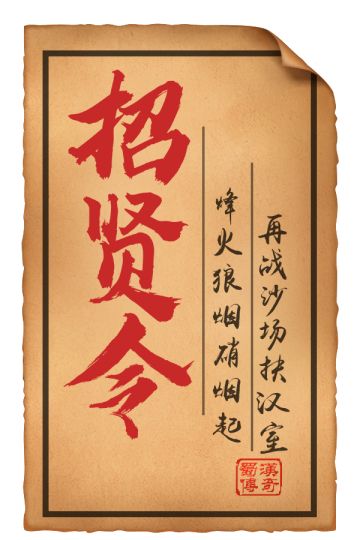 招贤令
烽火狼烟硝烟起
再战沙场扶汉室
漢奇
蜀傳